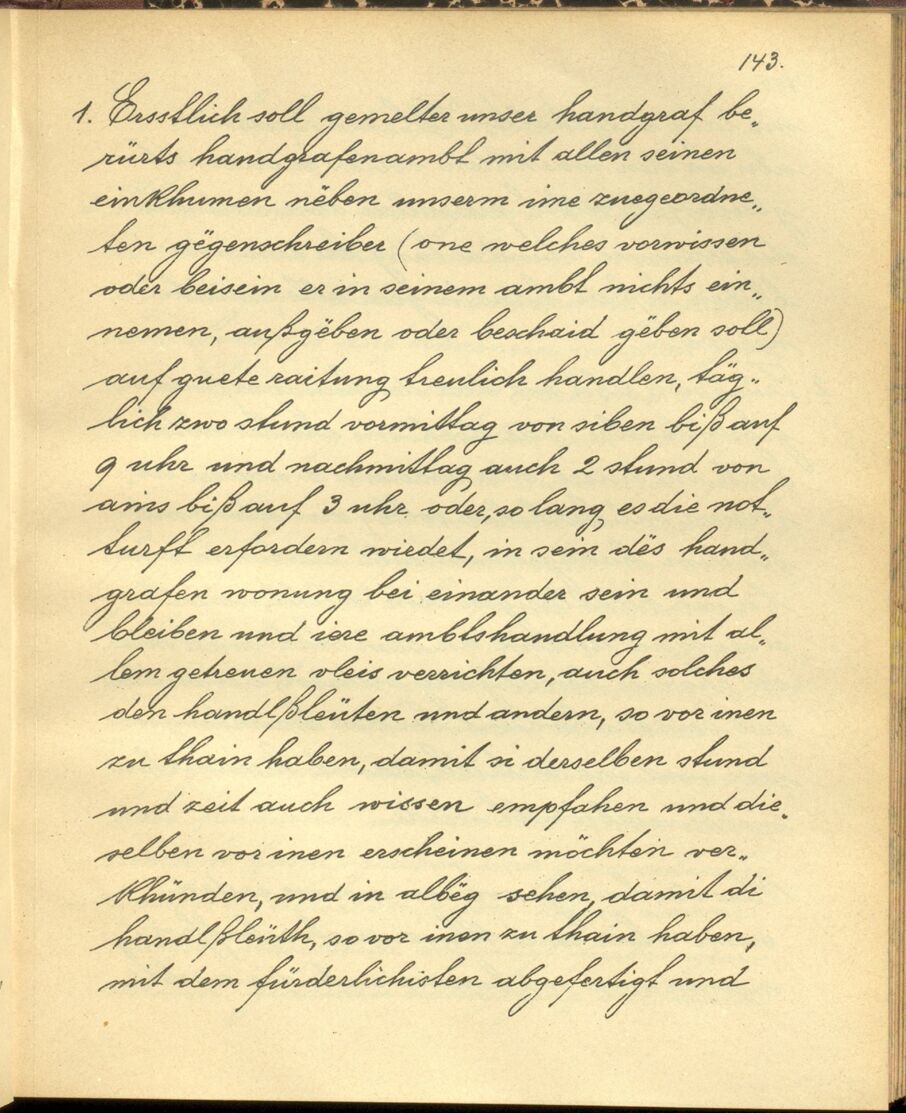 143.
1. Ersstlich soll gemelter unser handgraf be„
rürts handgrafenambt mit allen seinen
einkhumen nëben unserm ime zuegeordne„
ten gëgenschreiber (one welches vorwissen
oder beisein er in seinem ambt nichts ein„
nemen, außgëben oder beschaid gëben soll)
auf guete raitung treulich handlen, täg„
lich zwo stund vormittag von siben biß auf
9 uhr und nachmittag auch 2 stund von
ains biß auf 3 uhr oder, so lang es die not„
turft erfordern wierdet, in sein dës hand„
grafen wonung bei einander sein und
bleiben und iere ambtshandlung mit al„
lem getreuen vleis verrichten, auch solches
den handlßleüten und andern, so vor inen
zu thain haben, damit si derselben stund
und zeit auch wissen empfahen und die„
selben vor inen erscheinen möchten ver„
khünden, und in albëg sehen, damit di
handlßleüth, so vor inen zu thain haben,
mit dem fürderlichisten abgefertigt und